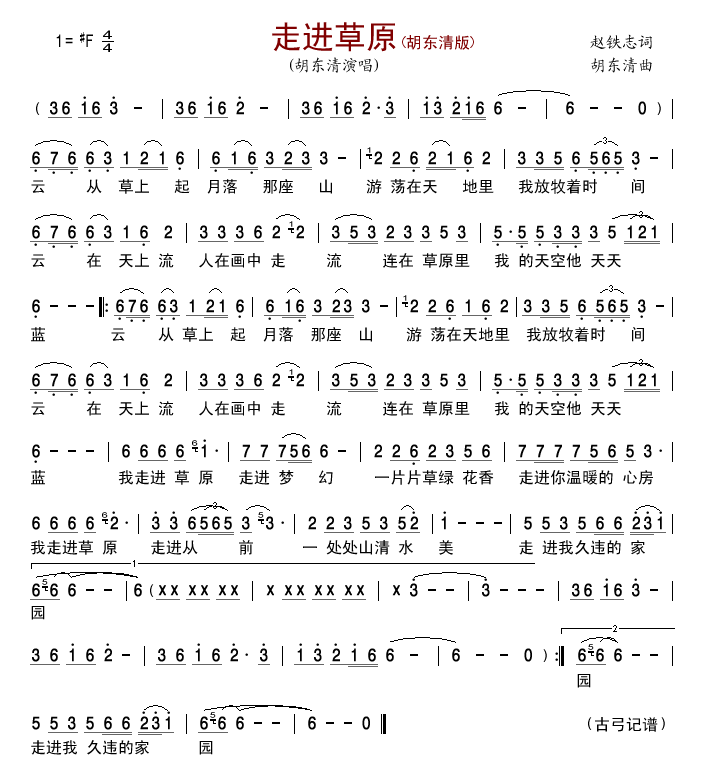 1= #F 4/4 走进草原(胡东清版) 赵铁志词
(胡东清演唱) 胡东清曲
( 36 16 3 - | 36 16 2 - | 36 16 2 · 3 | 13 216 6 - | 6 - - 0 ) |
6 7 6 6 3 1 2 1 6 | 6 1 6 3 2 3 3 - | 1 2 2 6 2 1 6 2 | 3 3 5 6 5 6 5 3 - |
云 从 草上 起 月落 那座 山 游 荡在天 地里 我放牧着时 间
6 7 6 6 3 1 6 2 | 3 3 3 6 2 1 2 | 3 5 3 2 3 3 5 3 | 5 · 5 5 3 3 3 5 1 2 1 |
云 在 天上 流 人在画中 走 流 连在 草原里 我 的天空他 天天
6 - - - |: 6 7 6 6 3 1 2 1 6 | 6 1 6 3 2 3 3 - | 1 2 2 6 1 6 2 | 3 3 5 6 5 6 5 3 - |
蓝 云 从 草上 起 月落 那座 山 游 荡在天地里 我放牧着时 间
6 7 6 6 3 1 6 2 | 3 3 3 6 2 1 2 | 3 5 3 2 3 3 5 3 | 5 · 5 5 3 3 3 5 1 2 1 |
云 在 天上 流 人在画中 走 流 连在 草原里 我 的天空他 天天
6 - - - | 6 6 6 6 6 1 · | 7 7 7 5 6 6 - | 2 2 6 2 3 5 6 | 7 7 7 7 5 6 5 3 · |
蓝 我走进 草 原 走进 梦 幻 一片片草绿 花香 走进你温暖的 心房
6 6 6 6 6 2 · | 3 3 6 5 6 5 3 5 3 · | 2 2 3 5 3 5 2 | 1 - - - | 5 5 3 5 6 6 2 3 1 |
我走进草 原 走进从 前 一 处处山清 水 美 走 进我久违的 家
1
6 5 6 6 - - | 6 ( x x x x x x | x x x x x x x x | x 3 - - | 3 - - - | 3 6 1 6 3 - |
园
3 6 1 6 2 - | 3 6 1 6 2 · 3 | 1 3 2 1 6 6 - | 6 - - 0 ) :| 2 6 5 6 6 - - |
园
5 5 3 5 6 6 2 3 1 | 6 5 6 6 - - | 6 - - 0 | (古弓记谱)
走进我 久违的家 园